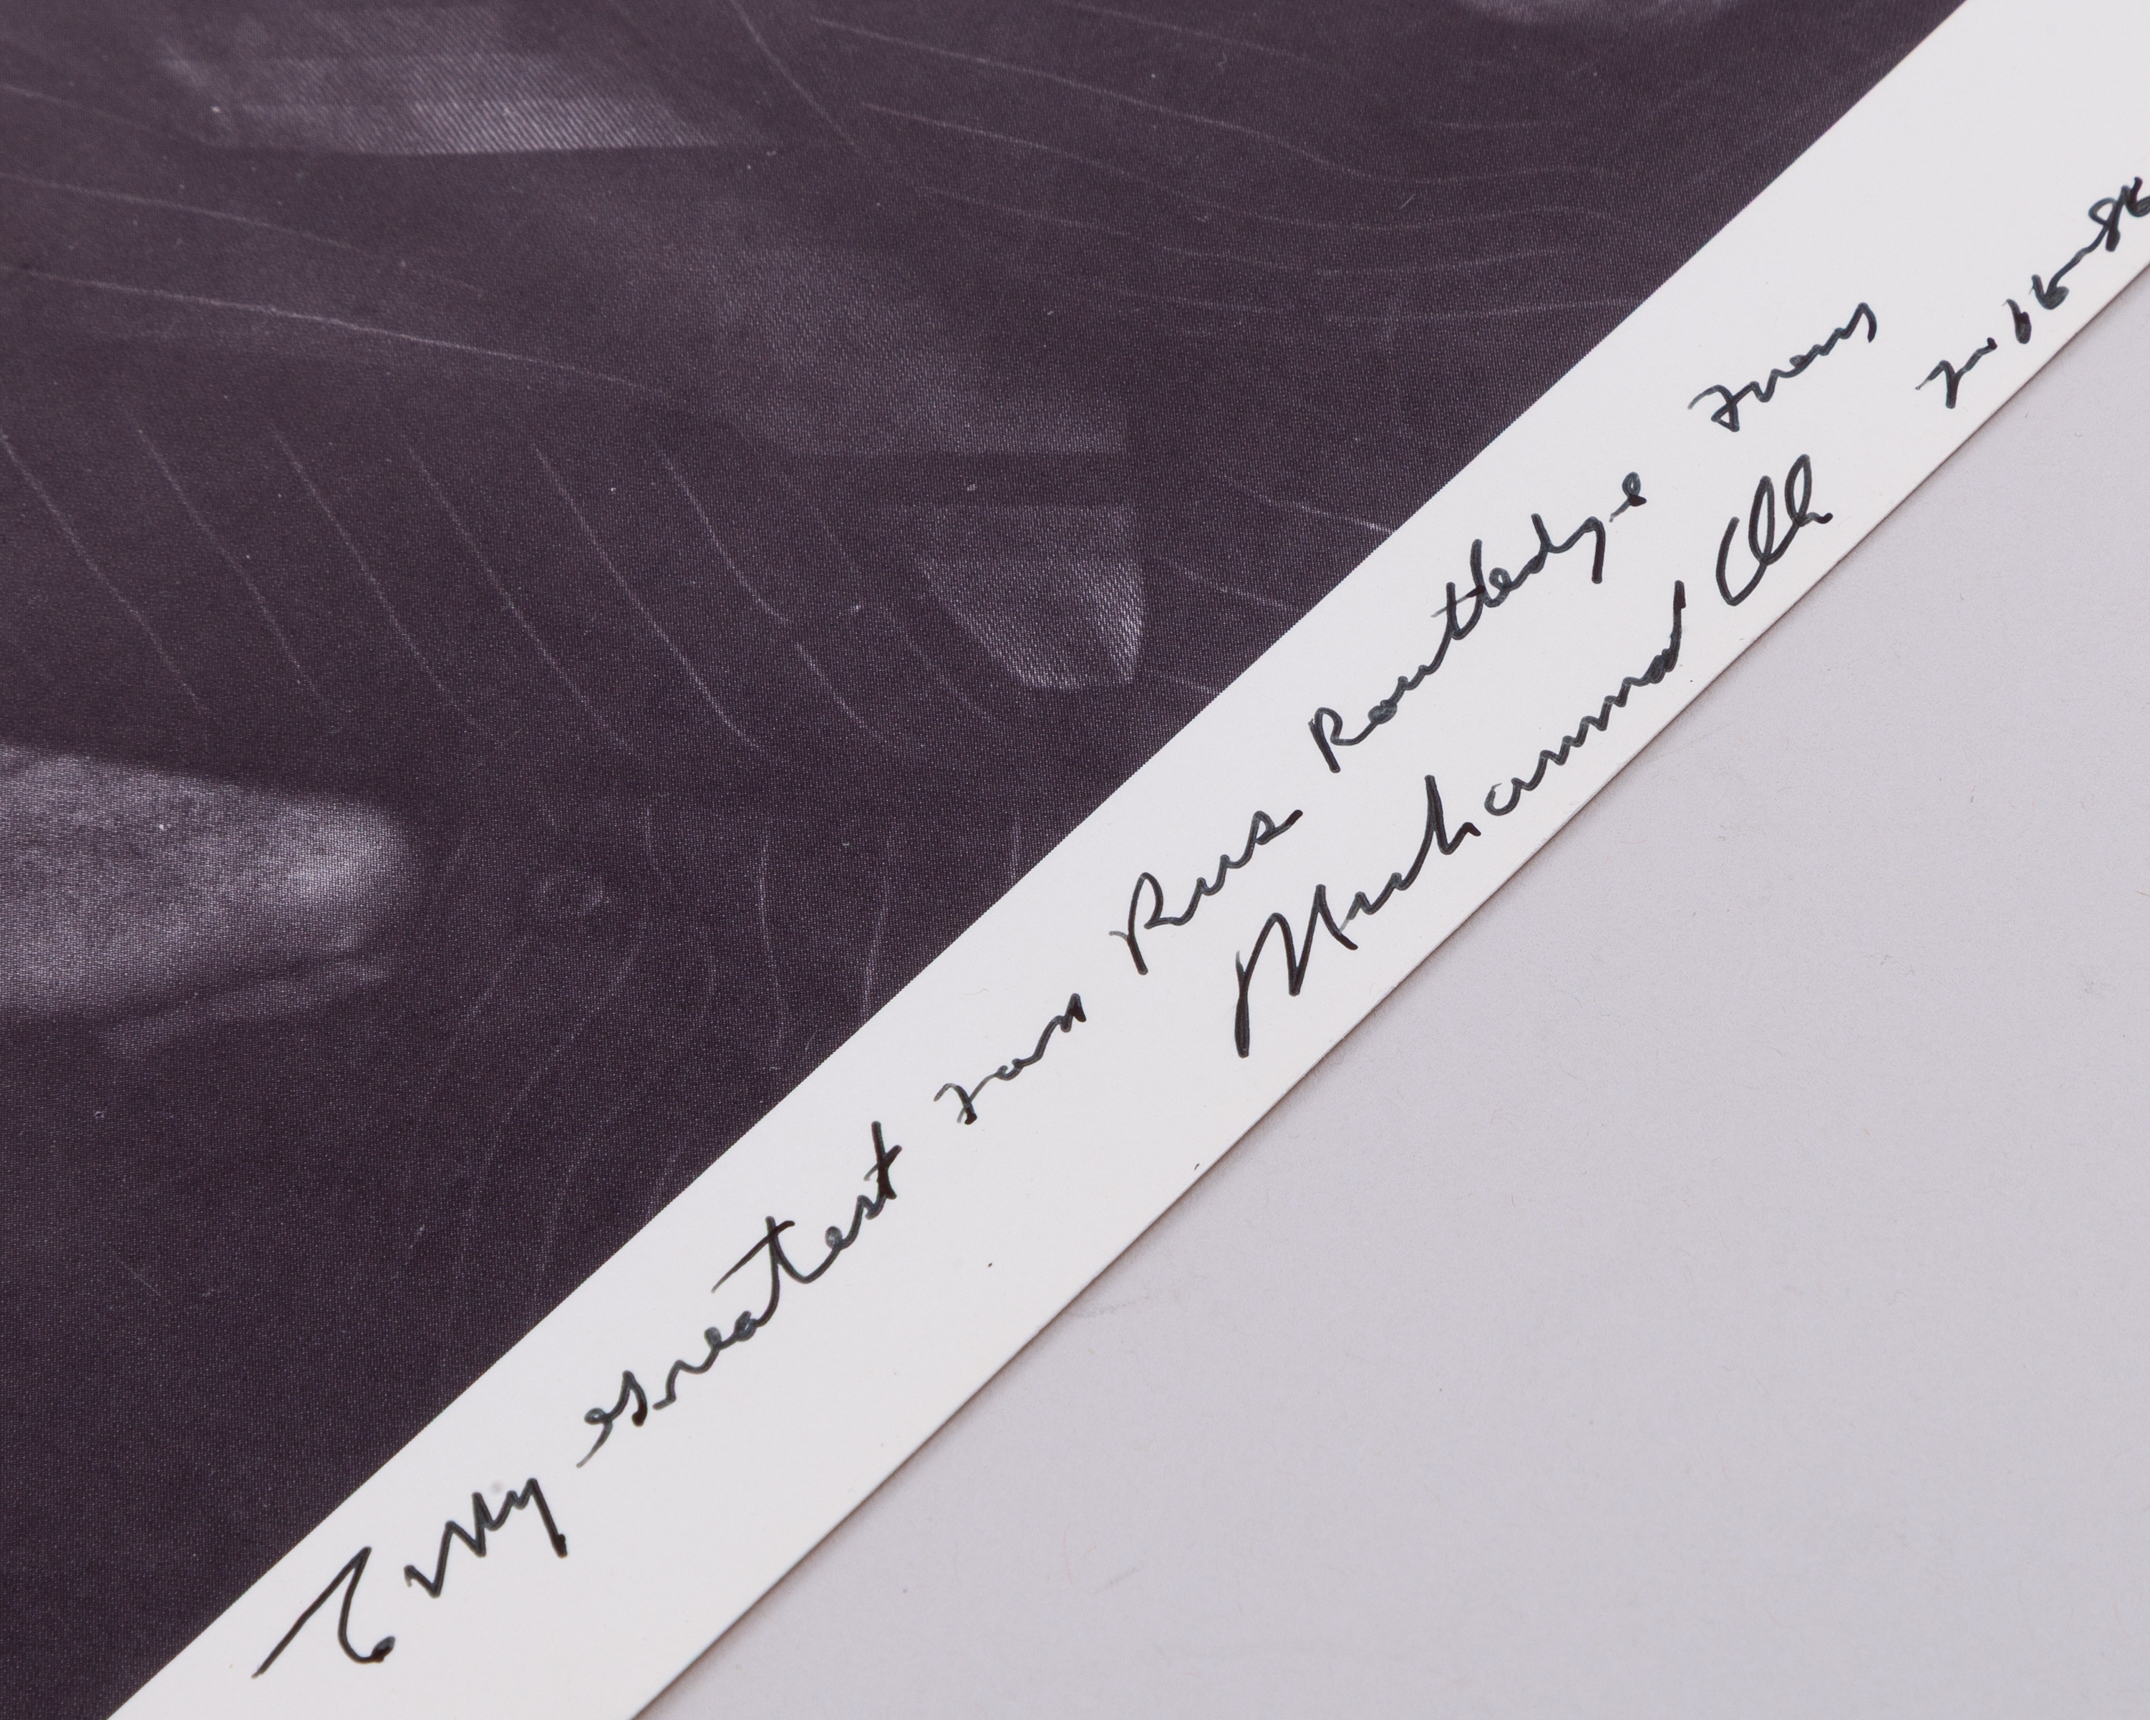 To My greatest fan Rus Routledge From
Muhammad Ali 2-16-86